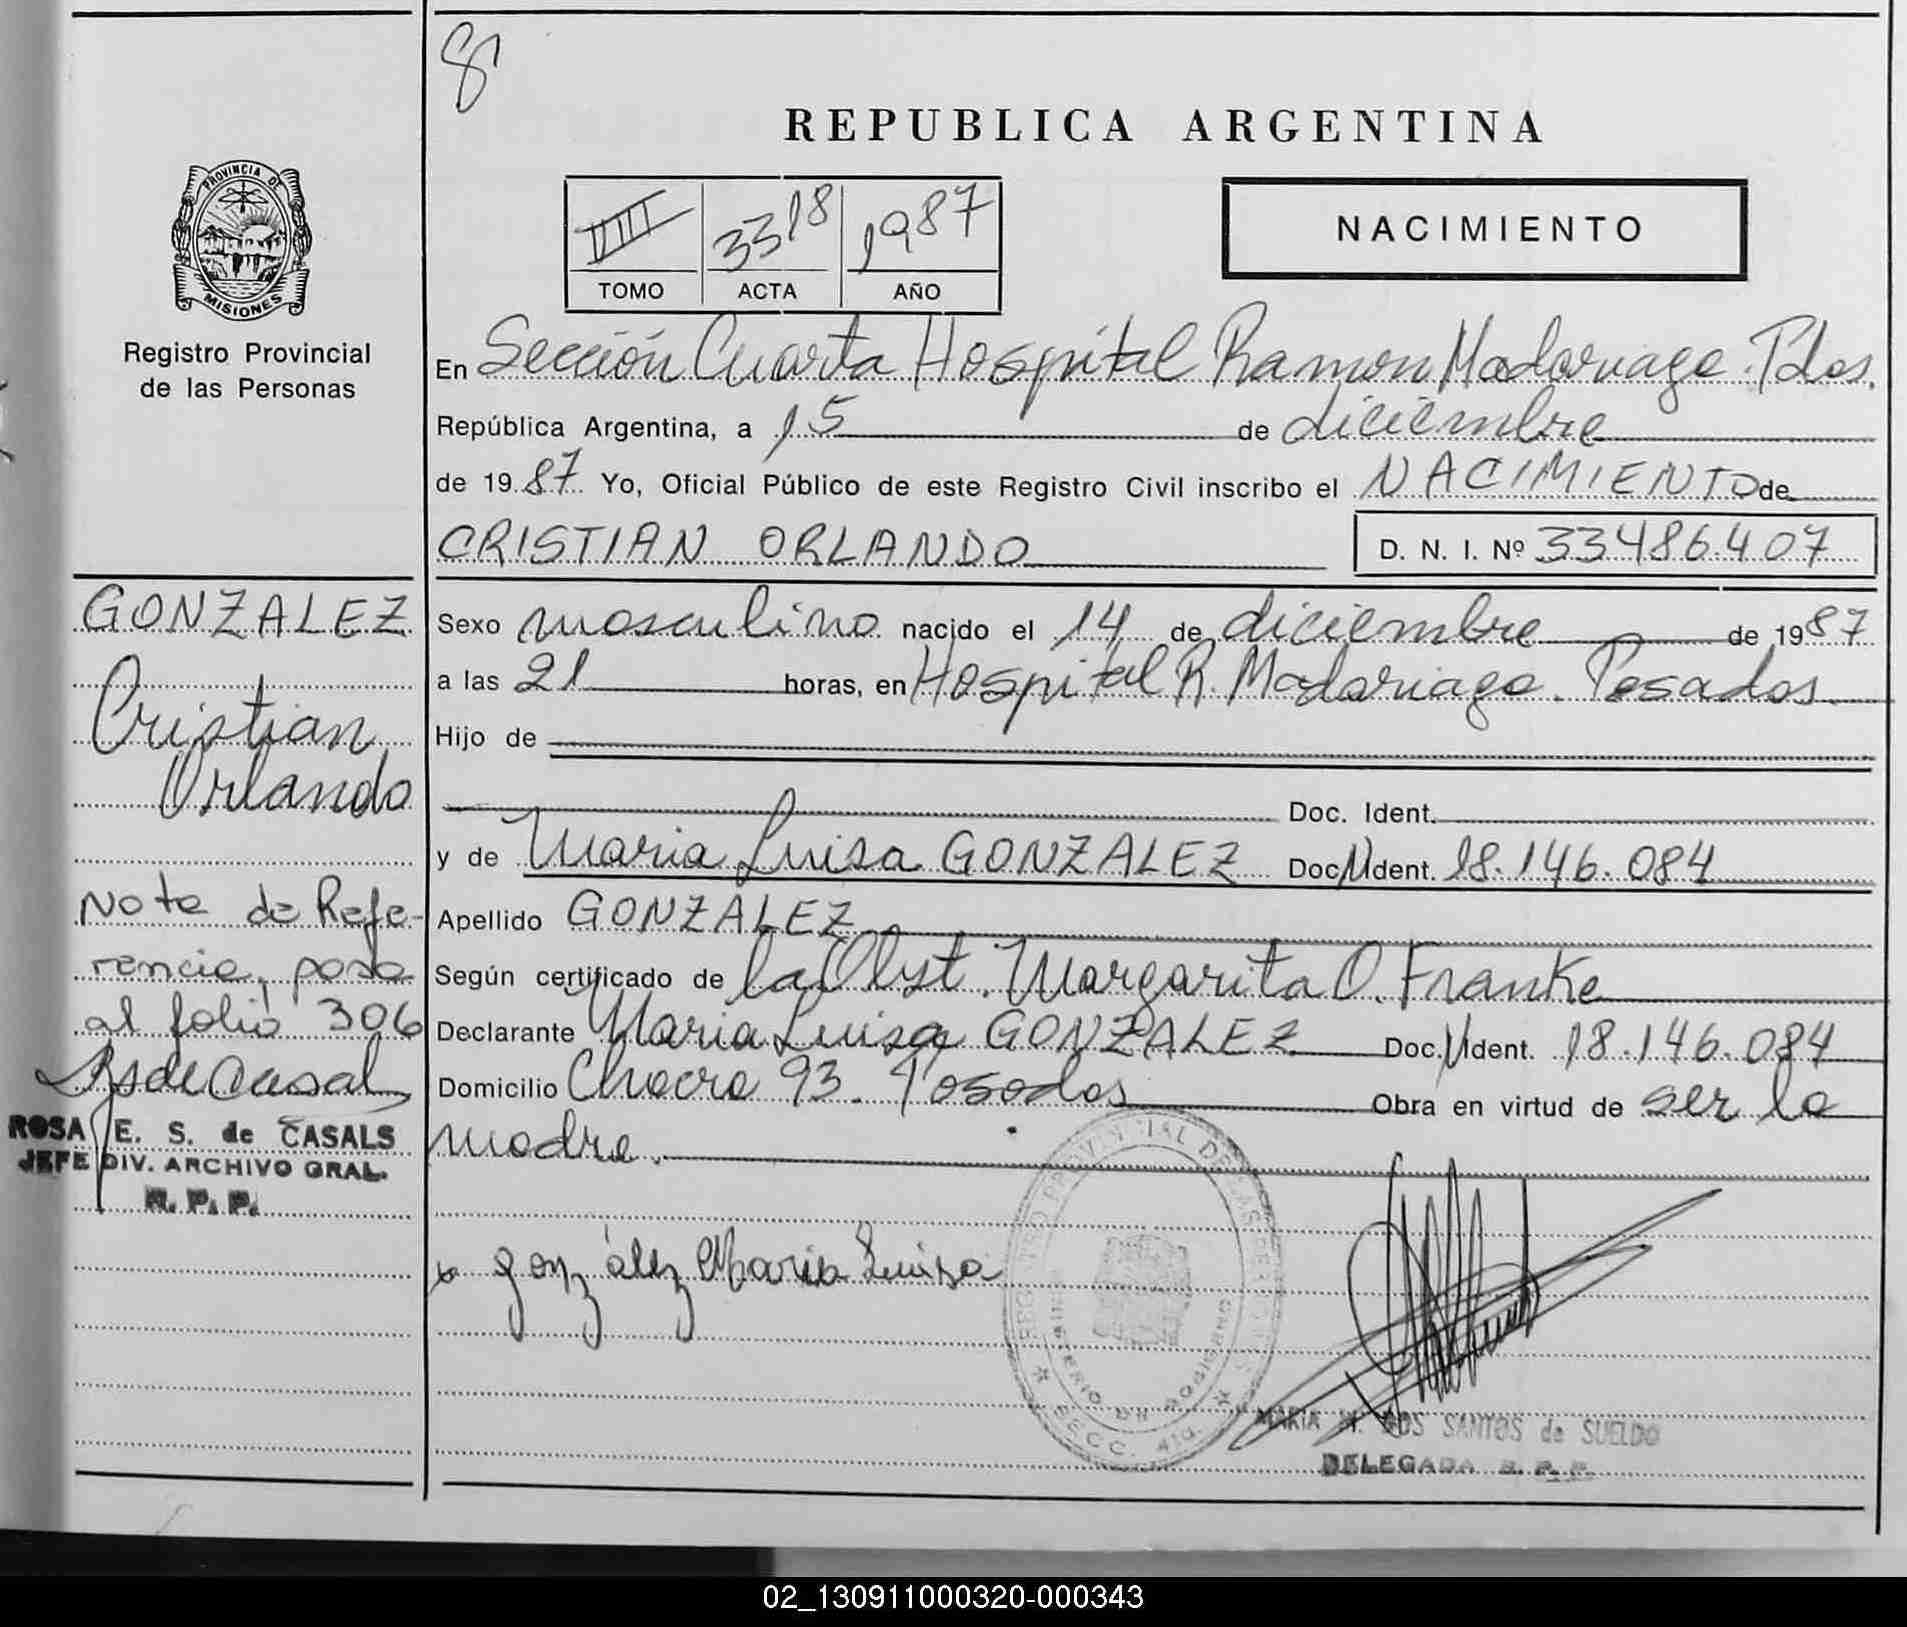 8
REPUBLICA ARGENTINA
PROVINCIA DE
MISIONES
Registro Provincial
de las Personas
VIII 3318 1987
TOMO ACTA AÑO
NACIMIENTO
En Sección Cuarta Hospital Ramon Madariaga. Pdas.
República Argentina, a 15 de diciembre
de 1987 Yo, Oficial Público de este Registro Civil inscribo el NACIMIENTO de
CRISTIAN ORLANDO D. N. I. Nº 33486.407
Sexo masculino nacido el 14 de diciembre de 1987
a las 21 horas, en Hospital R. Madariaga. Posadas.
Hijo de
Doc. Ident.
y de Maria Luisa GONZALEZ Doc. Ident. 18.146.084
Apellido GONZALEZ
Según certificado de la Obst. Margarita O. Franke
Declarante Maria Luisa GONZALEZ Doc. Ident. 18.146.084
Domicilio Chacra 93. Posadas Obra en virtud de ser la
madre.
x gonzález Maria Luisa
MARIA M. DOS SANTOS de SUELDO
DELEGADA R. P. P.
GONZALEZ
Cristian
Orlando
Nota de Refe-
rencia, pasa
al folio 306
ROSA E. S. de CASALS
JEFE DIV. ARCHIVO GRAL.
R. P. P.
SECC. 4ta.
02_130911000320-000343